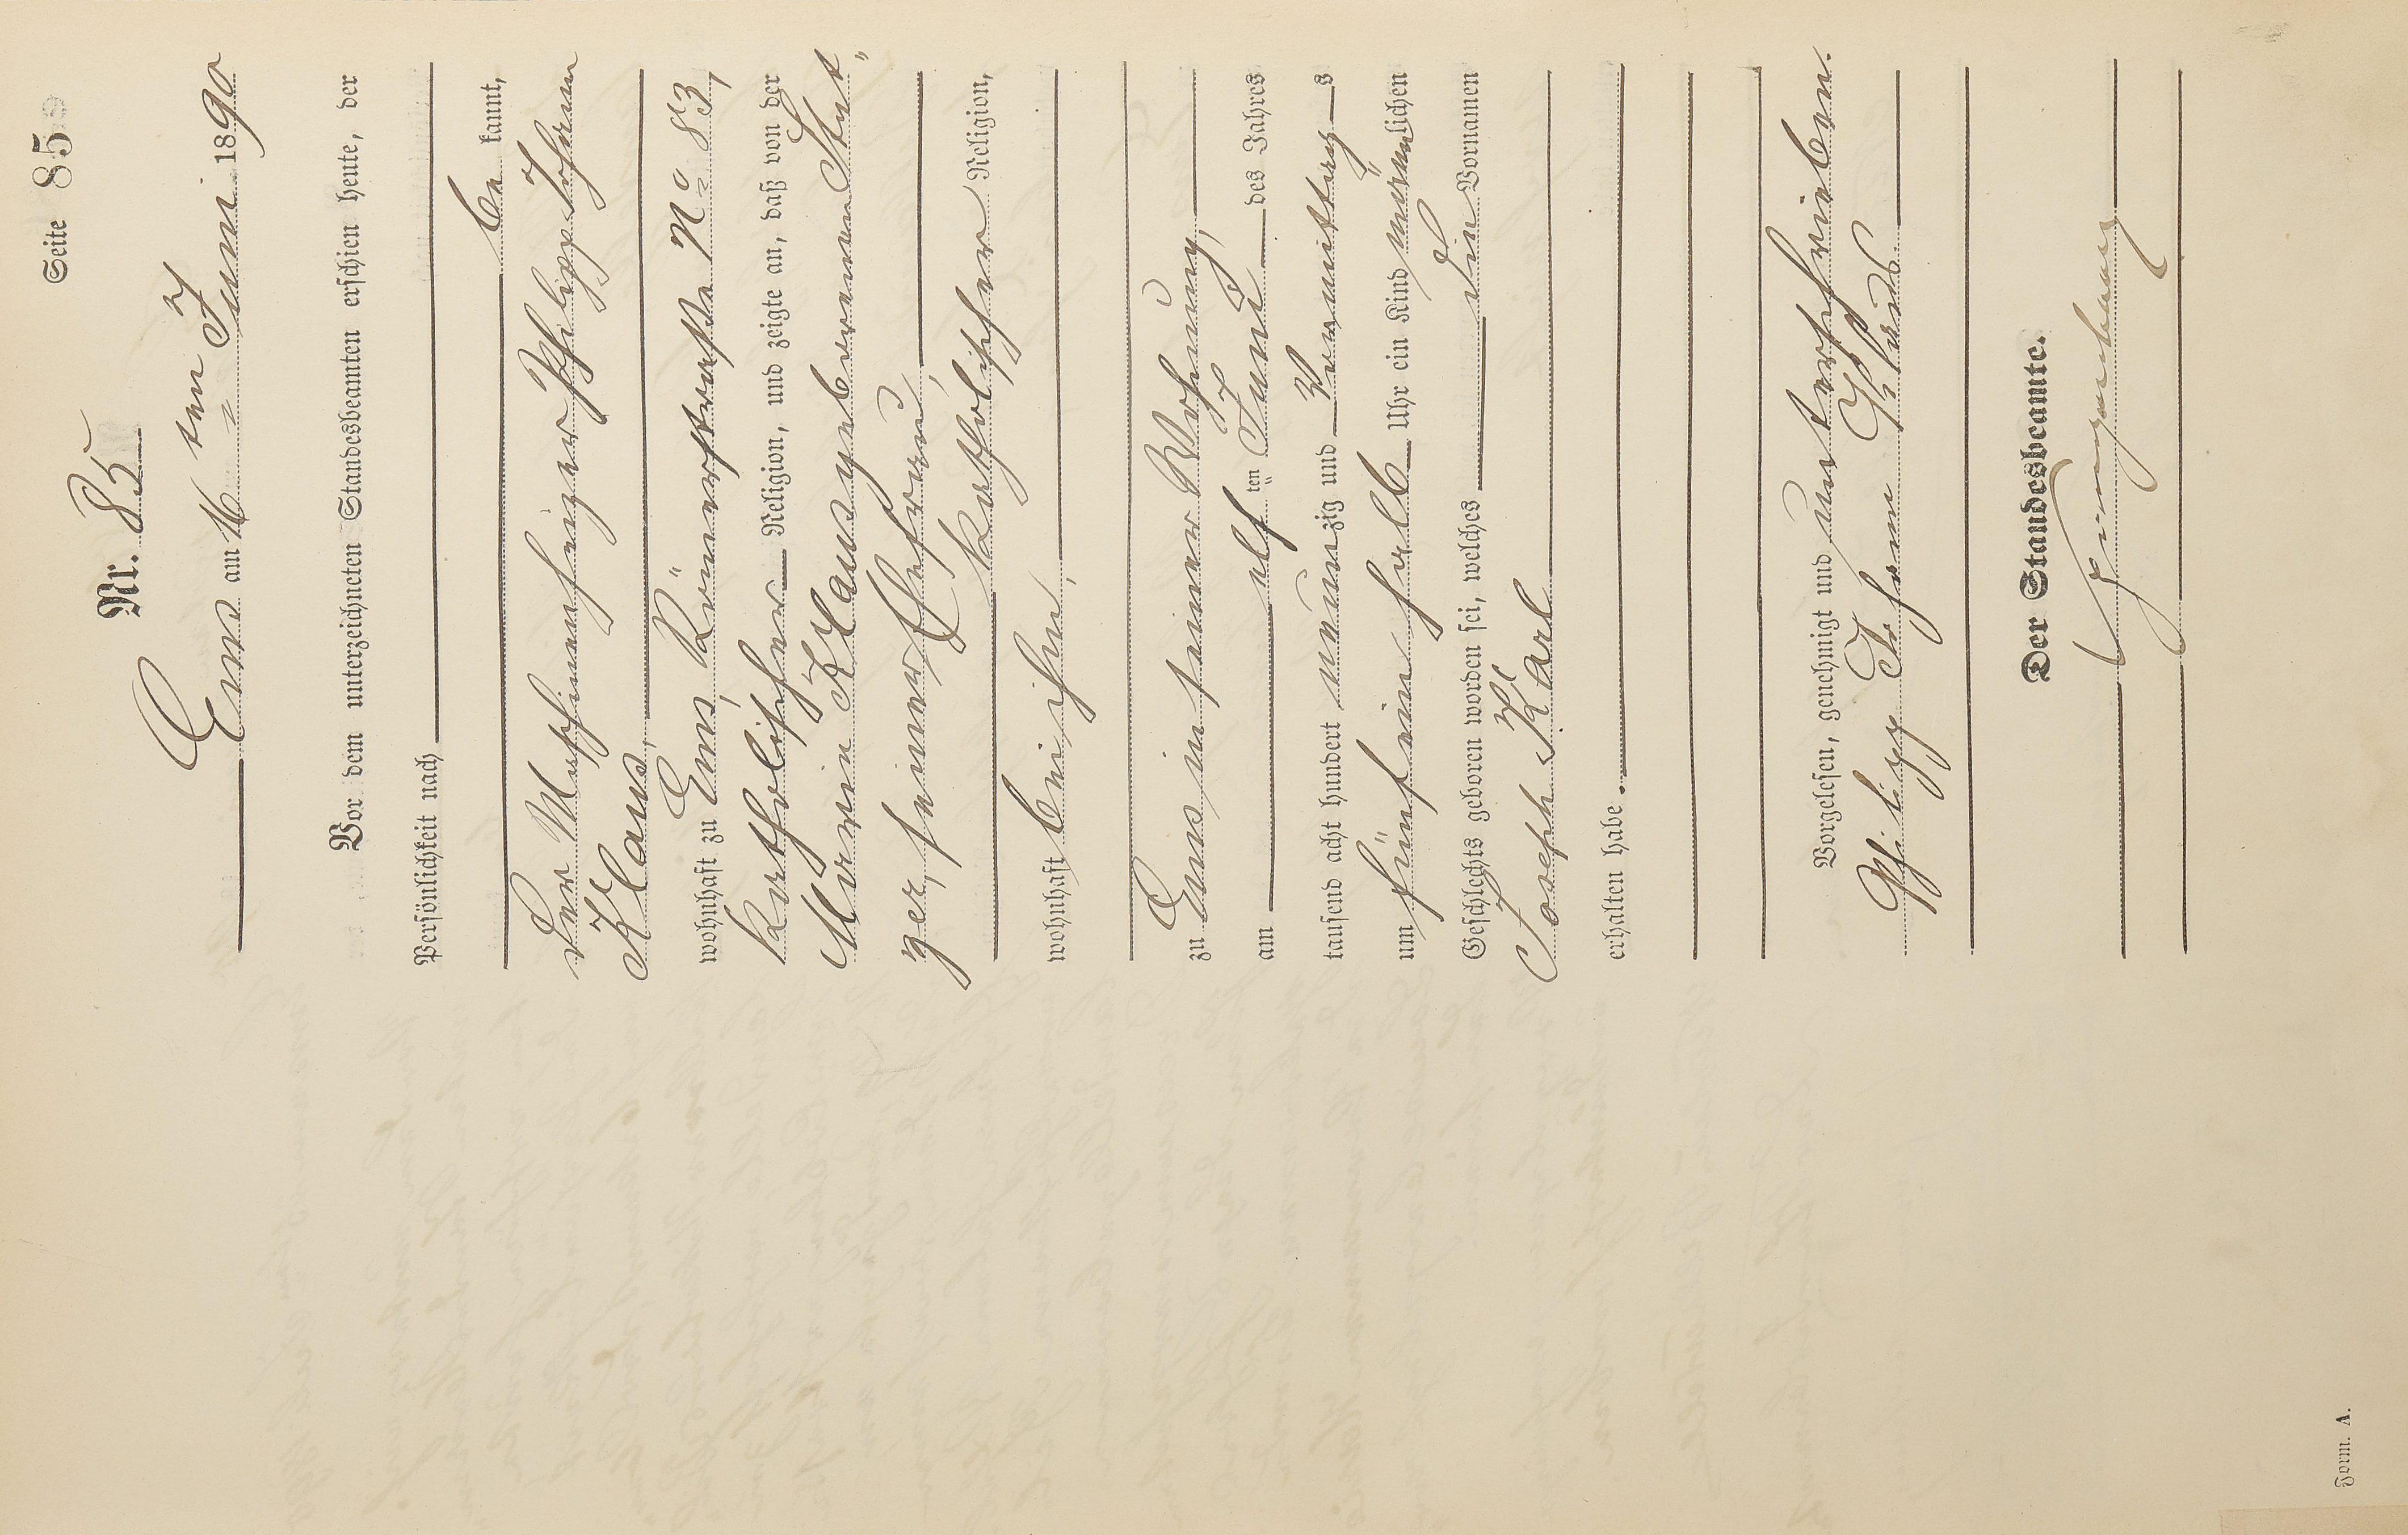 Seite 85
Nr. 85
Ems am 16ten Juni 1890
Vor dem unterzeichneten Standesbeamten erschien heute, der
Persönlichkeit nach
be kannt,
der Maschinenheizer Philipp Johann
Klaus,
wohnhaft zu Ems, Römerstraße No 83,
katholischer Religion, und zeigte an, daß von der
Maria Klaus geborenen
ger, seiner Ehefrau,
katholischer Religion,
wohnhaft bei ihm,
zu Ems in seiner Wohnung,
am elf ten Juni des Jahres
tausend acht hundert neunzig und Vormittags
um fünf ein halb Uhr ein Kind männlichen
Geschlechts geboren worden sei, welches die Vornamen
Joseph Karl
erhalten habe.
Vorgelesen, genehmigt und unterschrieben.
Philipp Johann Klaus
Der Standesbeamte.
Form. A.